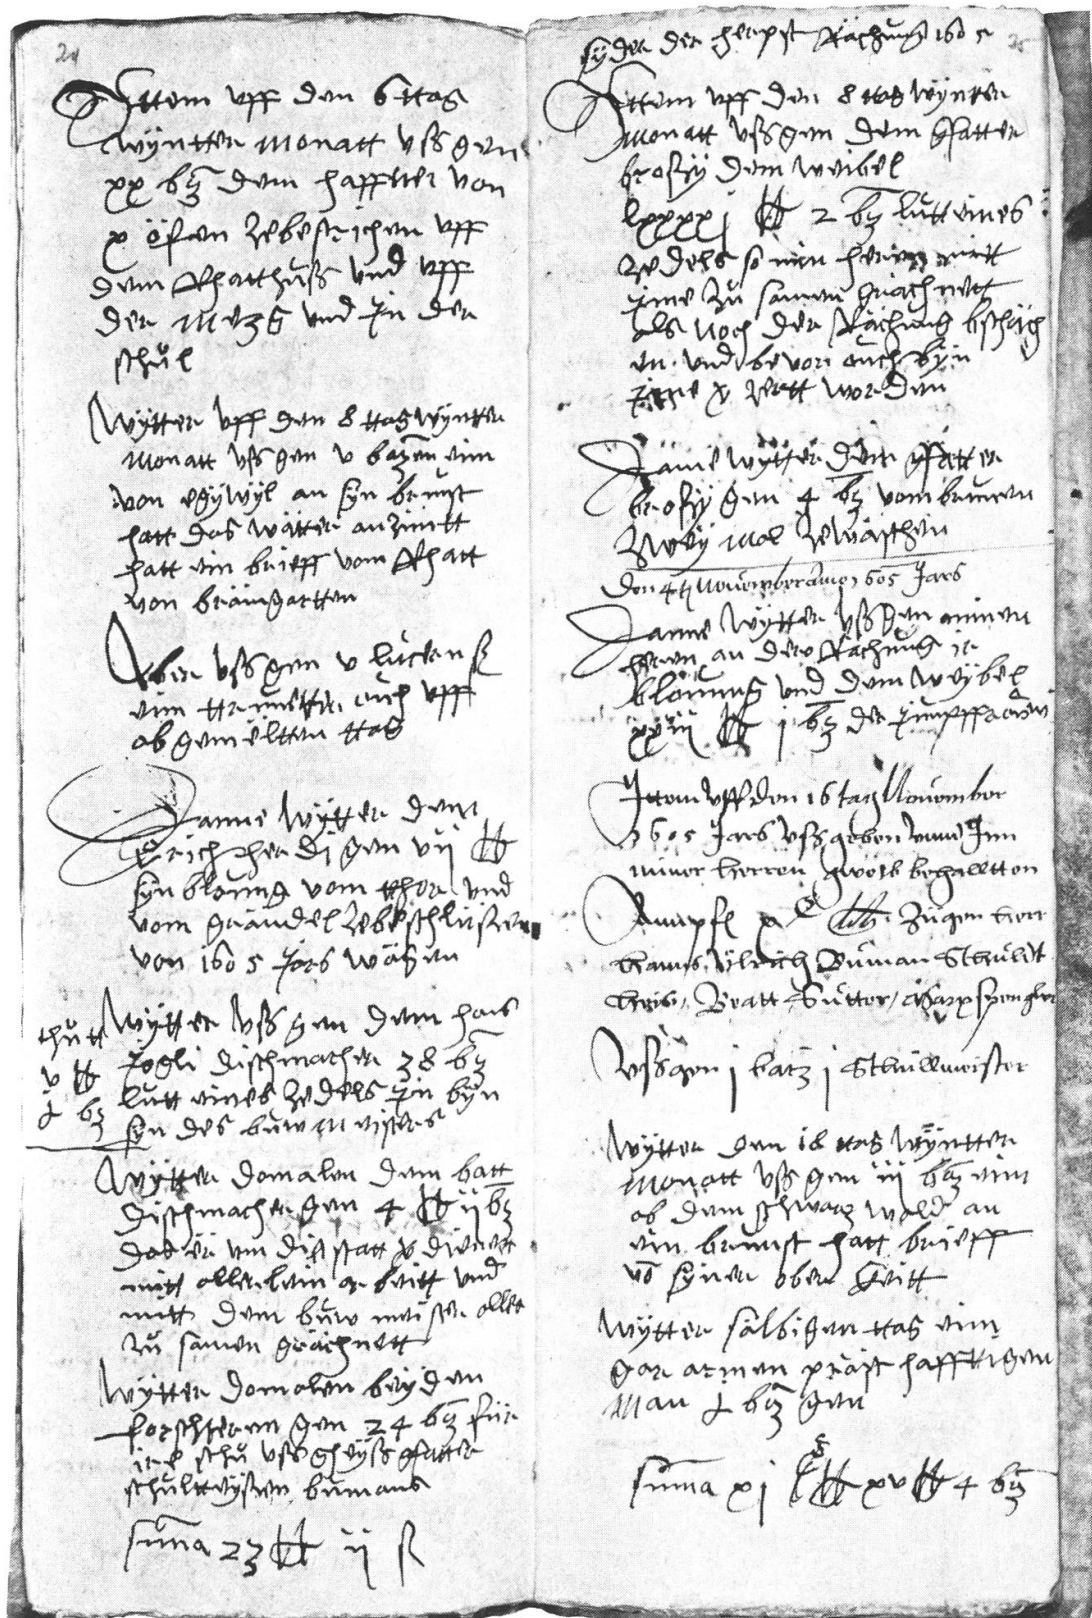 24
Jttem uff den 6 ttag
wyntter monatt uss gen
xx bz dem haffner von
x öfen ze bestrichen uff
dem Rhatthuss und uff
der metzg und jn der
schůl
Wytter uff den 8 ttag wyntter
monatt uss gen v batzen eim
von egywyl an syn brunst
hatt das wätter anzünt
hatt ein brieff vom Rhatt
von brämgartten
Aber uss gen v lucern ß
eim ouch uff
ob gemeltten ttag
Danne wytter dem
Erich gen vij lb
syn blonung vom thor und
vom grändel ze beschliessen
von 1605 jars wägen
Wytter uss gen dem hans
jogli dischmacher 38 bz
lutt eines zedels jn byn
syn des buwmeisters
thůtt
v lb
bz
Wytter domalen dem batt
dischmacher gen 4 lb ij bz
das er um die statt v dienet
mitt allerlein arbeitt und
mitt dem buwmeister alles
zů samen grächnett
Wytter domalen beyden
forschteren gen 24 bz für
ire schů uss gheyss gfatter
schulttheyssen bumans
suma 23 lb ij ß
syder der herpst Rächnung 1605
25
Jttem uff den 8 ttag wyntter
monatt uss gen dem gfatter
brosy dem weibel
lxxxxj lb 2 bz lutt eines
zedels so min heren mitt
jme zů samen grächnett
als noch der Rächnung bschäch
en und bevor ouch byn
jme v zertt worden
Danne wytter dem gfatter
brosy gen 4 bz vom brunen
zwey mol ze wäschen
Den 4 tt November Anno 1605 Jars
Danne wytter uss gen minen
heren an der Rachnung ir
blonung und dem weybel
xxiij lb j bz der
Jttem uff den 16 tag November
1605 Jars uss geben unnd Jnn
miner herren gwölb behalltten
Rumpfs x lib. Zügen herr
hanns Ulrich Buman Schuldt
heis, Beatt Sutter, Casarp Spengler
Uss gen j batz j Schullmeister
Wytter den 18 ttag wyntter
monatt uss gen iij bz eim
ab dem schwartz wald an
ein brunst hatt brieff
vo syner oberkeitt
Wytter sälbigen ttag eim
gar armen präst hafftigen
man bz gen
suma xj lb xv lb 4 bz